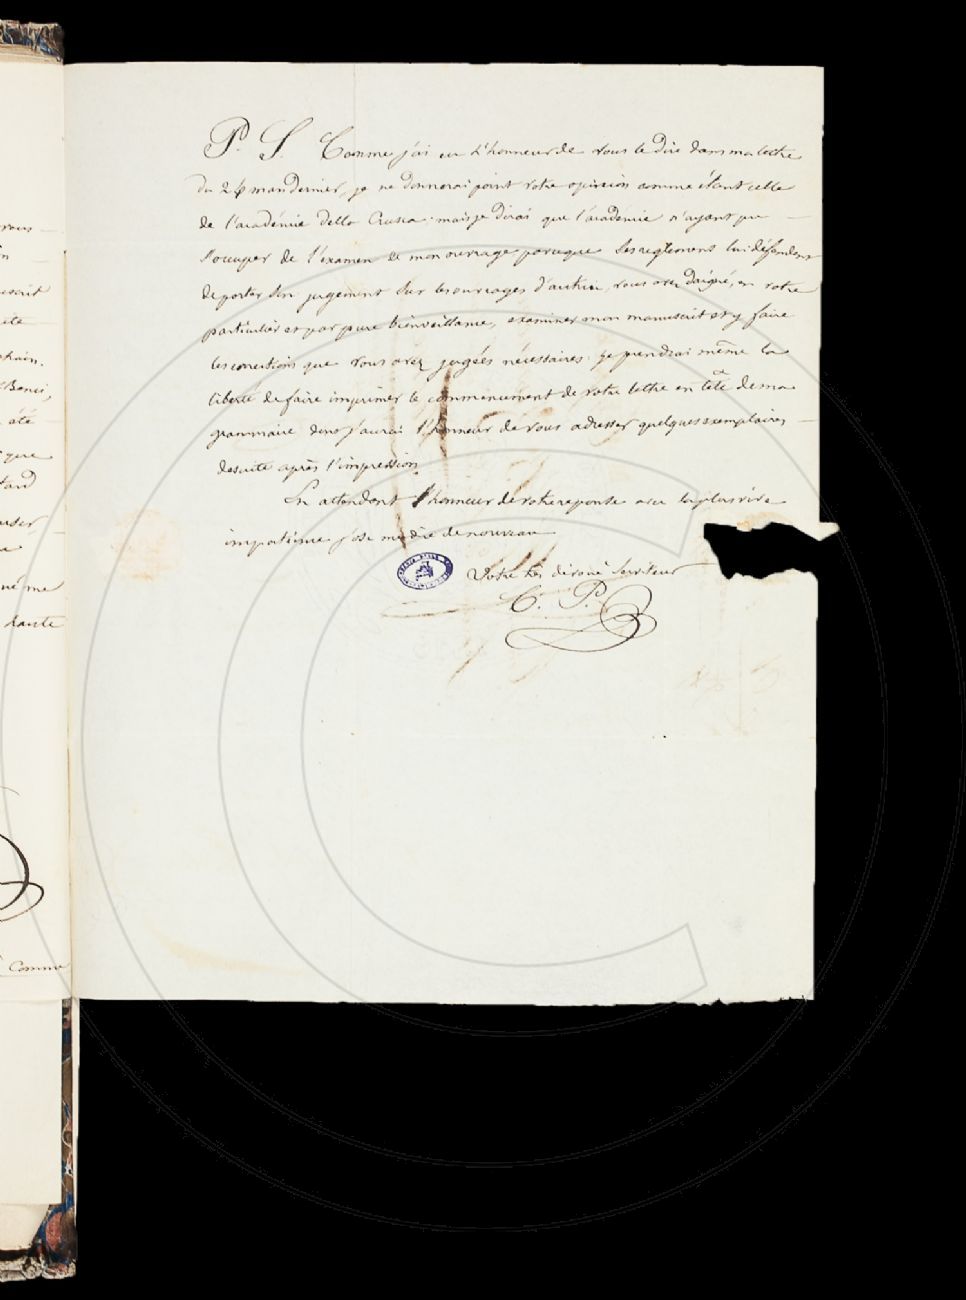 P. S. Comme j'ai eu l'honneur de vous le dire dans ma lettre
du 24 mars dernier, je ne donnerai point votre opinion comme étant celle
de l'académie della Crusca. mais je dirai que l'académie n'ayant pu
s'occuper de l'examen de mon ouvrage parceque ses reglements lui défendent
de porter son jugement sur les ouvrages d'autrui, vous avez daigné, en votre
particulier et par pure bienveillance, examiner mon manuscrit et y faire
les corrections que vous avez jugées nécessaires. je prendrai même la
liberté de faire imprimer le commencement de votre lettre en tête de ma
grammaire dont j'aurai l'honneur de vous adresser quelques exemplaires
desuite après l'impression.
En attendant l'honneur de votre reponse avec la plus vive
impatience j'ose me dire de nouveau
Votre très dévoué Serviteur
C. P.
uscrit
Benci,
été
tard
même
dante
Comme